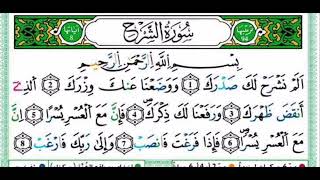 سُورَةُ الشَّرْحِ
94
8
بِسْمِ اللَّهِ الرَّحْمَٰنِ الرَّحِيمِ
أَلَمْ نَشْرَحْ لَكَ صَدْرَكَ 1 وَوَضَعْنَا عَنكَ وِزْرَكَ 2 الَّذِي
أَنقَضَ ظَهْرَكَ 3 وَرَفَعْنَا لَكَ ذِكْرَكَ 4 فَإِنَّ مَعَ الْعُسْرِ يُسْرًا 5 إِنَّ
مَعَ الْعُسْرِ يُسْرًا 6 فَإِذَا فَرَغْتَ فَانصَبْ 7 وَإِلَىٰ رَبِّكَ فَارْغَب 8